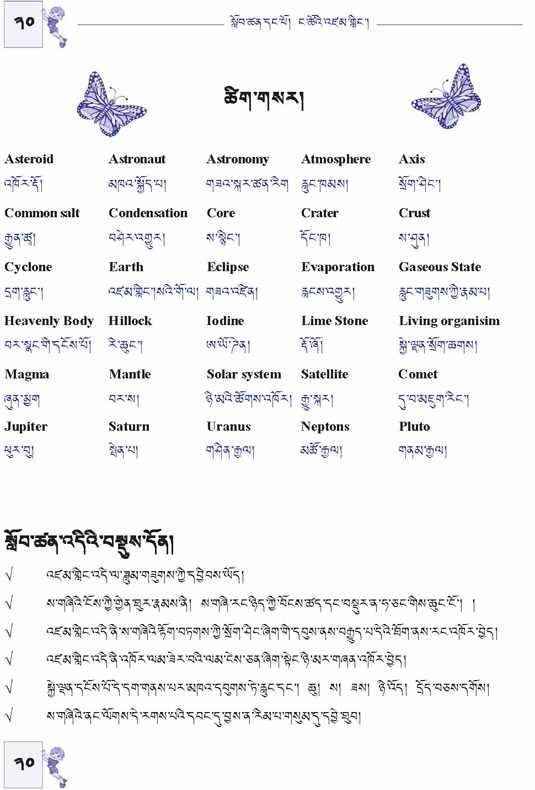 ༡༠ སློབ་ཚན་དང་པོ། ང་ཚོའི་འཛམ་གླིང་།
ཚིག་གསར།
Asteroid Astronaut Astronomy Atmosphere Axis
འཁོར་རྡོ། མཁའ་སྐྱོད་པ། གཟའ་སྐར་ཚན་རིག རླུང་ཁམས། སྲོག་ཤིང་།
Common salt Condensation Core Crater Crust
རྒྱུན་ཚྭ། བཤེར་འགྱུར། ས་སྙིང་། དོང་ཁ། ས་ཤུན།
Cyclone Earth Eclipse Evaporation Gaseous State
དྲག་རླུང་། འཛམ་གླིང་།སའི་གོ་ལ། གཟའ་འཛིན། རླངས་འགྱུར། རླུང་གཟུགས་ཀྱི་རྣམ་པ།
Heavenly Body Hillock Iodine Lime Stone Living organisim
བར་སྣང་གི་དངོས་པོ། རི་ཆུང་། ཨ་ཡོ་ཌིན། རྡོ་ཞོ། སྐྱེ་ལྡན་སྲོག་ཆགས།
Magma Mantle Solar system Satellite Comet
ཞུན་མྱག བར་ས། ཉི་མའི་ཚོགས་འཁོར། རྒྱུ་སྐར། དུ་བ་མཇུག་རིང་།
Jupiter Saturn Uranus Neptons Pluto
ཕུར་བུ། སྤེན་པ། གཤིན་རྒྱལ། མཚོ་རྒྱལ། གནམ་རྒྱལ།
སློབ་ཚན་འདིའི་བསྡུས་དོན།
√ འཛམ་གླིང་འདི་ལ་ཟླུམ་གཟུགས་ཀྱི་དབྱིབས་ཡོད།
√ ས་གཞིའི་ངོས་ཀྱི་གྱེན་ཐུར་རྣམས་ནི། ས་གཞི་རང་ཉིད་ཀྱི་བོངས་ཚད་དང་བསྡུར་ན་ཧ་ཅང་གིས་ཆུང་ངོ་། །
√ འཛམ་གླིང་འདི་ནི་ས་གཞིའི་རྟོག་བཏགས་ཀྱི་སྲོག་ཤིང་ཞིག་གི་དབུས་ནས་བརྒྱུད་པ་དེའི་ཐོག་ནས་རང་འཁོར་བྱེད།
√ འཛམ་གླིང་འདི་ནི་འཁོར་ལམ་ཟེར་བའི་ལམ་ངེས་ཅན་ཞིག་སྟེང་ཉི་མར་གཞན་འཁོར་བྱེད།
√ སྐྱེ་ལྡན་དངོས་པོ་དེ་དག་གནས་པར་མཁའ་དབུགས་ཏེ་རླུང་དང་། ཆུ། ས། ཟས། ཉི་འོད། དྲོད་བཅས་དགོས།
√ ས་གཞིའི་ནང་ལོགས་དེ་རགས་པའི་དབང་དུ་བྱས་ན་རིམ་པ་གསུམ་དུ་དབྱེ་ཐུབ།
༡༠